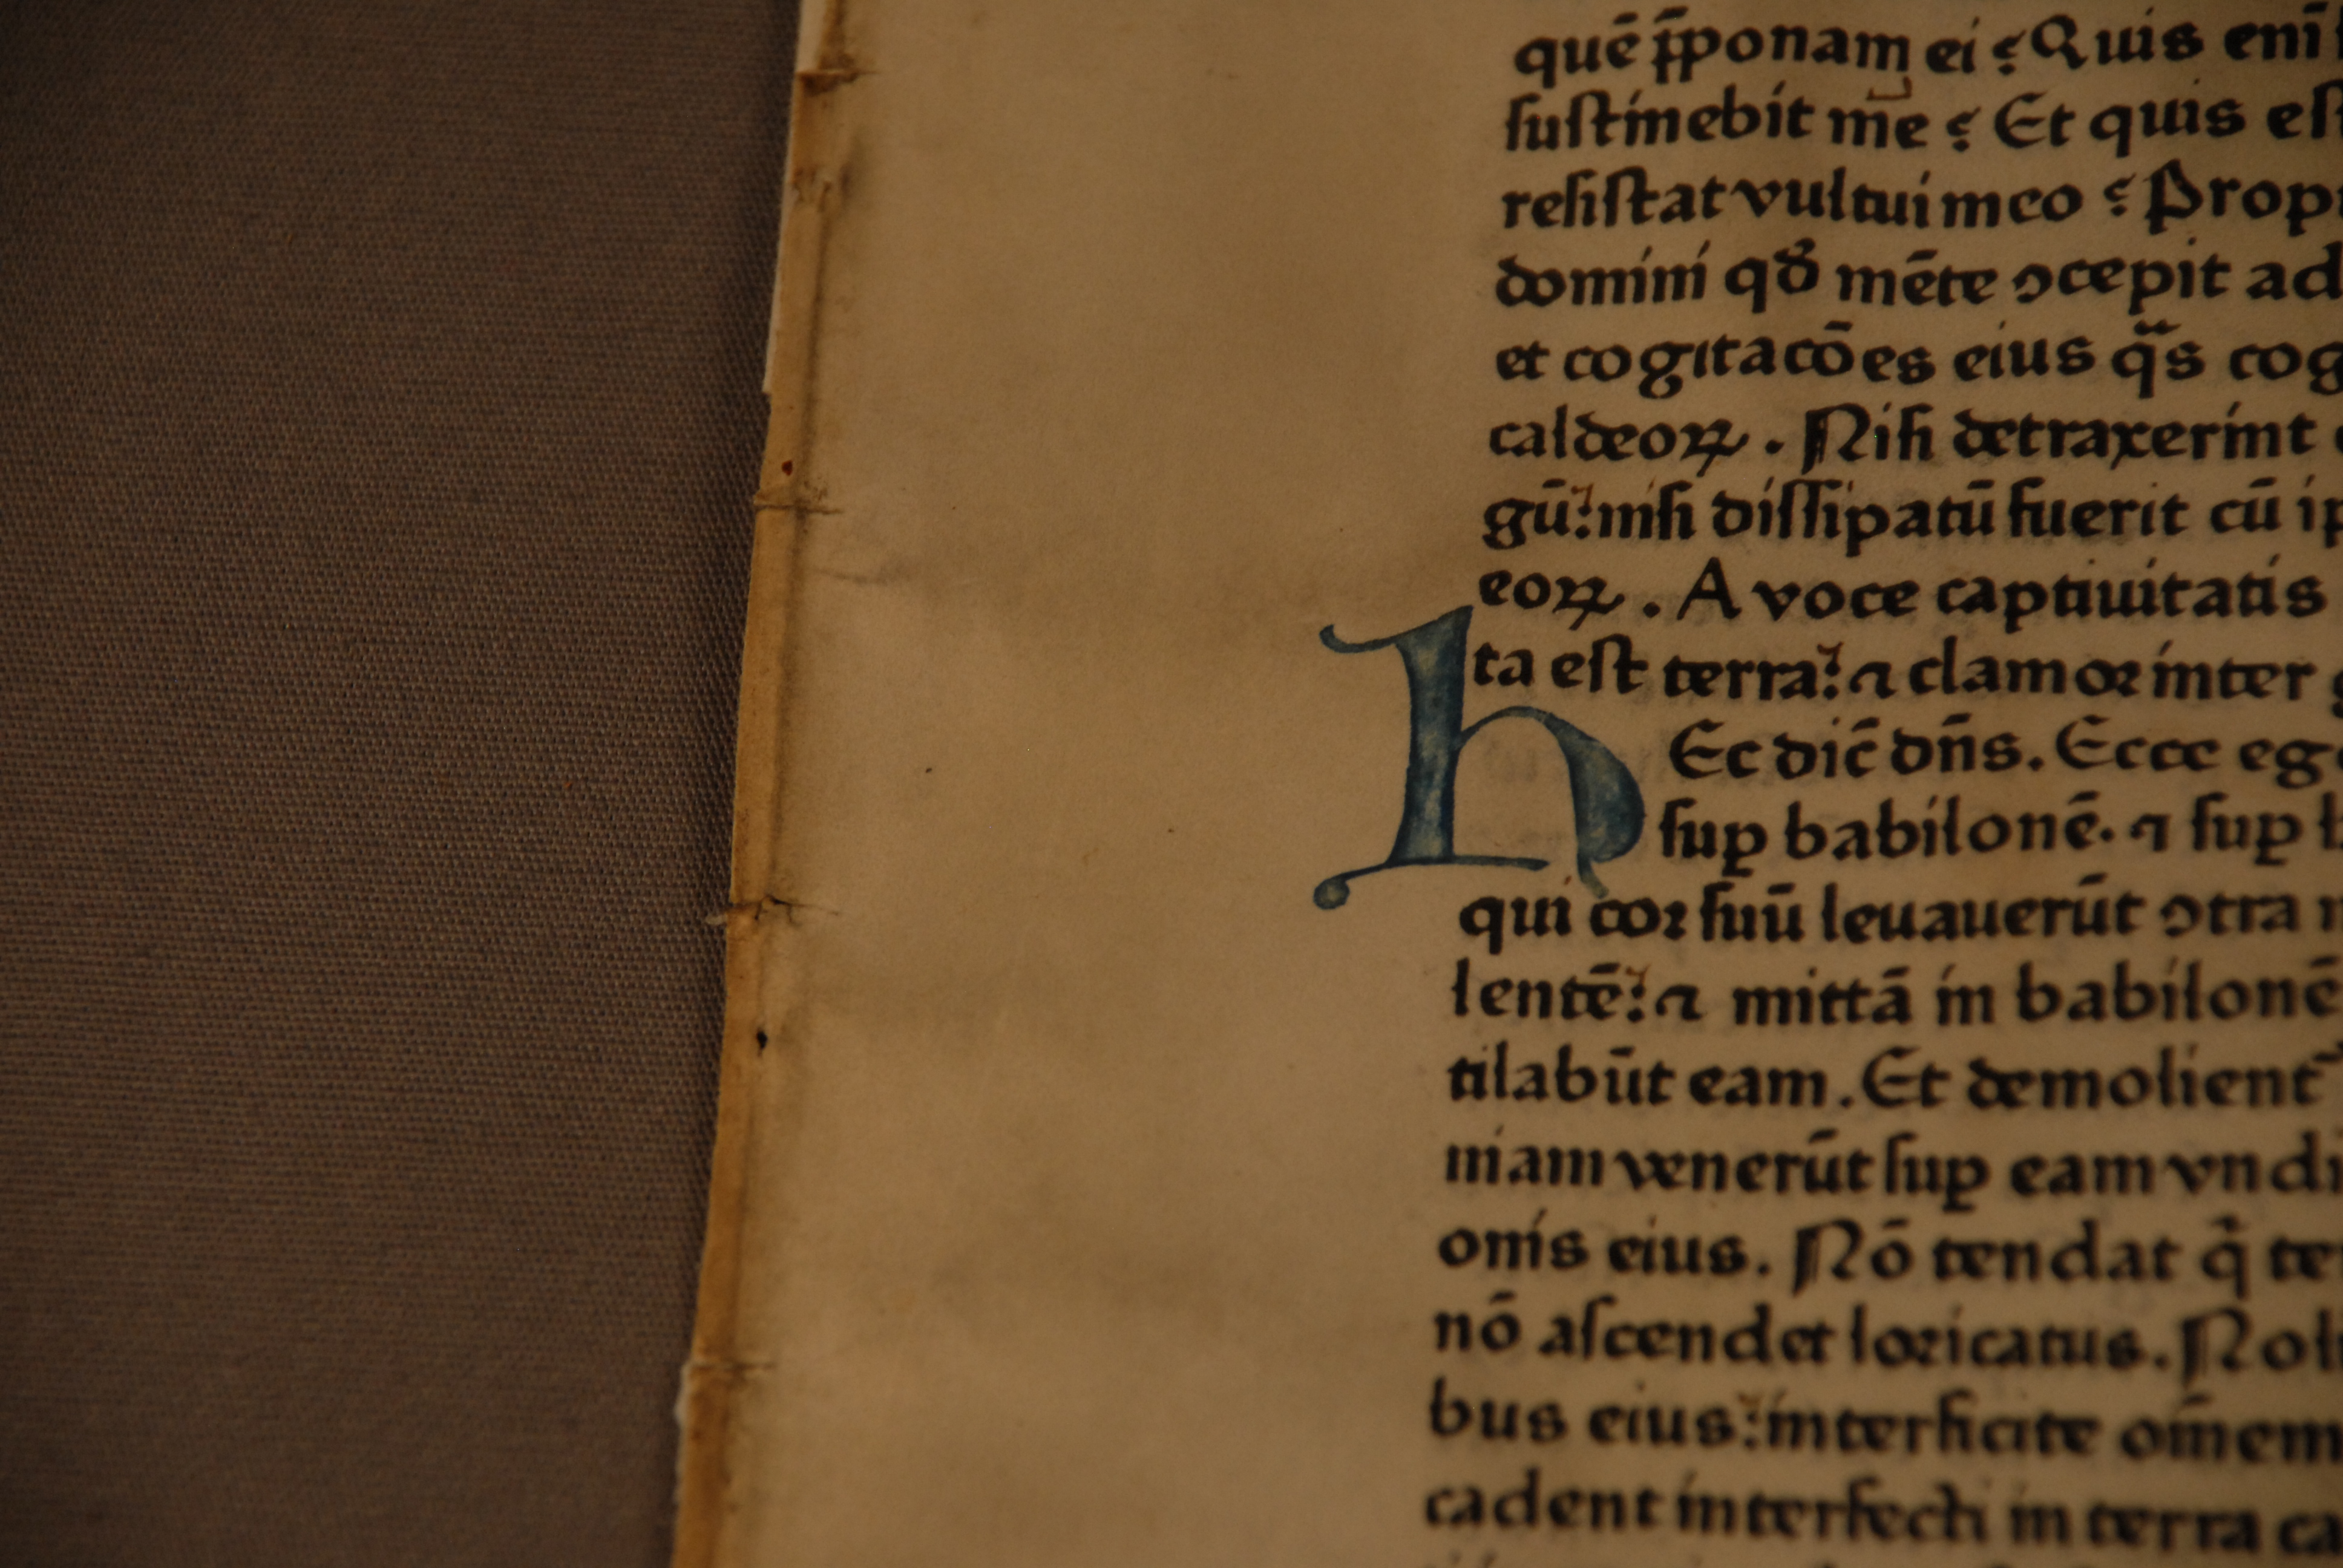 quē p̄ponam ei ? Quis enī
sustinebit me ? Et quis es
resistat vultui meo ? Prop
domini qđ mēte ↄcepit ad
et cogitacōes eius q̃s cog
caldeoꝝ . Nisi detraxerint
gū: nisi dissipatū fuerit cū ip
eoꝝ . A voce captiuitatis
ta est terra: ⁊ clamor inter g
hEc dic̄ dn̄s. Ecce eg
suꝑ babilonē. ⁊ suꝑ
qui cor suū leuauerūt ↄtra
lentē: ⁊ mittā in babilonē
tilabūt eam . Et demolient᷑
niam venerūt suꝑ eam vndi
onis eius. Nō tendat q̇ te
nō ascendet loricatus. Nol
bus eius: interficite om̄em
cadent interfecti in terra ca